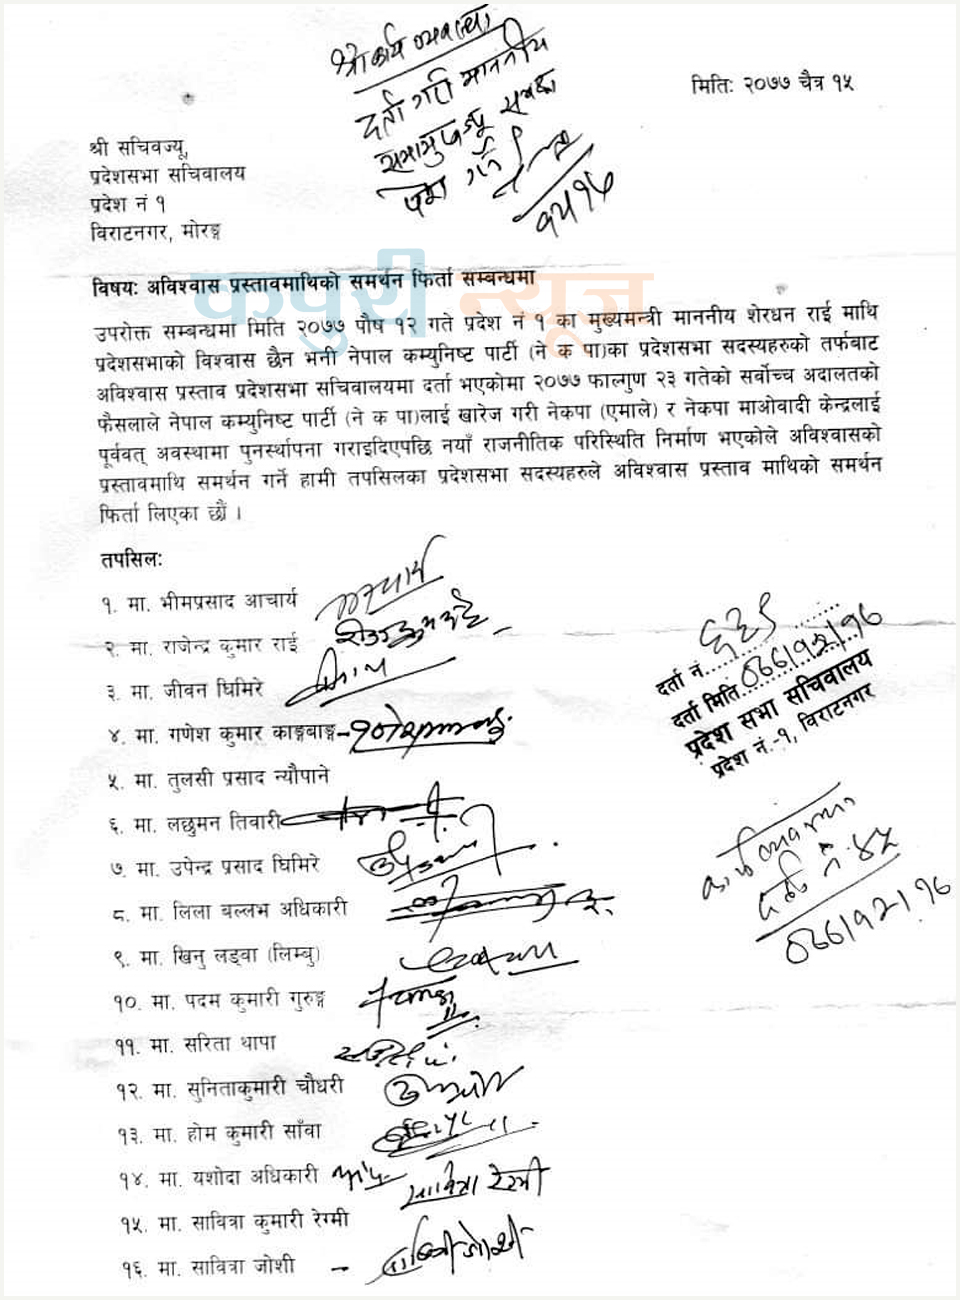 श्री कार्य व्यवस्था
दर्ता गरी माननीय
सभामुखज्यू समक्ष
पेश गर्ने
मिति: २०७७ चैत्र १५
श्री सचिवज्यू,
प्रदेशसभा सचिवालय
प्रदेश नं १
विराटनगर, मोरङ्ग
कपुरी न्यूज
विषय: अविश्वास प्रस्तावमाथिको समर्थन फिर्ता सम्बन्धमा
उपरोक्त सम्बन्धमा मिति २०७७ पौष १२ गते प्रदेश नं १ का मुख्यमन्त्री माननीय शेरधन राई माथि
प्रदेशसभाको विश्वास छैन भनी नेपाल कम्युनिष्ट पार्टी (ने क पा)का प्रदेशसभा सदस्यहरुको तर्फबाट
अविश्वास प्रस्ताव प्रदेशसभा सचिवालयमा दर्ता भएकोमा २०७७ फाल्गुण २३ गतेको सर्वोच्च अदालतको
फैसलाले नेपाल कम्युनिष्ट पार्टी (ने क पा)लाई खारेज गरी नेकपा (एमाले) र नेकपा माओवादी केन्द्रलाई
पूर्ववत् अवस्थामा पुनर्स्थापना गराइदिएपछि नयाँ राजनीतिक परिस्थिति निर्माण भएकोले अविश्वासको
प्रस्तावमाथि समर्थन गर्ने हामी तपसिलका प्रदेशसभा सदस्यहरुले अविश्वास प्रस्ताव माथिको समर्थन
फिर्ता लिएका छौं ।
तपसिल:
१. मा. भीमप्रसाद आचार्य
२. मा. राजेन्द्र कुमार राई
३. मा. जीवन घिमिरे
४. मा. गणेश कुमार काङ्गबाङ्ग
५. मा. तुलसी प्रसाद न्यौपाने
६. मा. लछुमन तिवारी
७. मा. उपेन्द्र प्रसाद घिमिरे
८. मा. लिला बल्लभ अधिकारी
९. मा. खिनु लङ्वा (लिम्बु)
१०. मा. पदम कुमारी गुरुङ्ग
११. मा. सरिता थापा
१२. मा. सुनिताकुमारी चौधरी
१३. मा. होम कुमारी साँवा
१४. मा. यशोदा अधिकारी
१५. मा. सावित्रा कुमारी रेग्मी
सावित्रा रेग्मी
१६. मा. सावित्रा जोशी -
दर्ता नं. ६३९
दर्ता मिति ०७७।१२।१६
प्रदेश सभा सचिवालय
प्रदेश नं.-१, विराटनगर
कार्य व्यवस्था
दर्ता नं. ४५
०७७।१२।१६